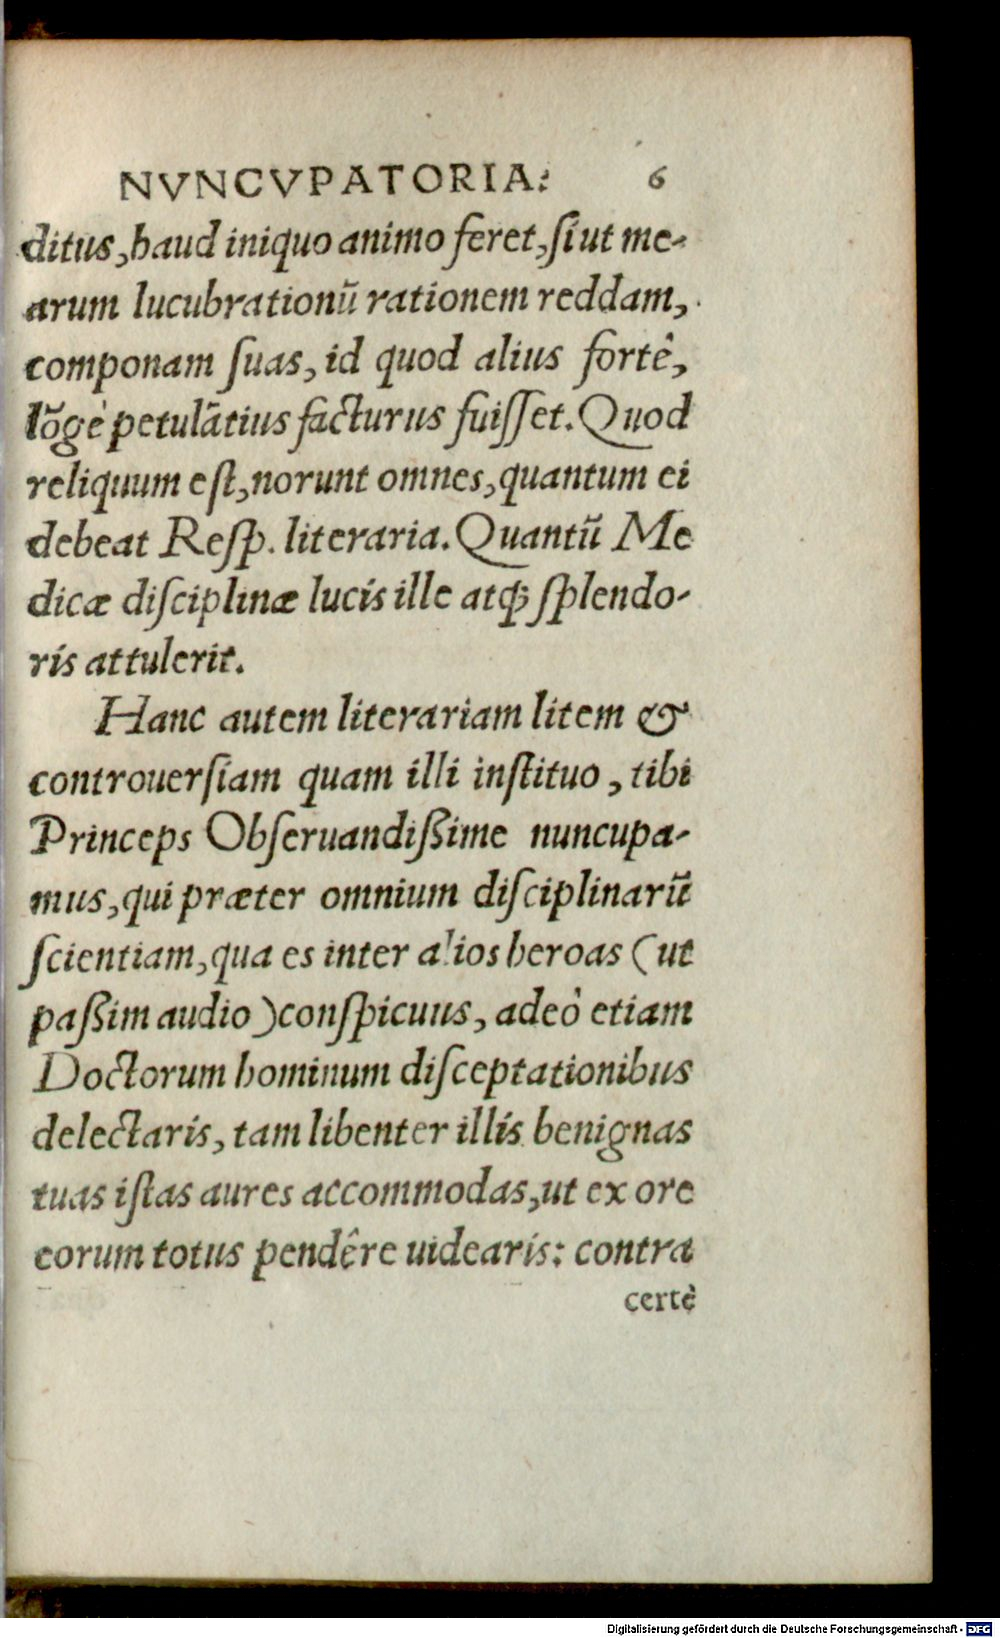 NVNCVPATORIA. 6
ditus, haud iniquo animo feret, ſi ut me-
arum lucubrationū rationem reddam,
componam ſuas, id quod alius fortè,
lōgè petulātius facturus fuiſſet. Quod
reliquum eſt, norunt omnes, quantum ei
debeat Reſp. literaria. Quantū Me
dicæ diſciplinæ lucis ille atq; ſplendo-
ris attulerit.
Hanc autem literariam litem &
controuerſiam quam illi inſtituo, tibi
Princeps Obſeruandißime nuncupa-
mus, qui præter omnium diſciplinarū
ſcientiam, qua es inter alios heroas (ut
paßim audio) conſpicuus, adeò etiam
Doctorum hominum diſceptationibus
delectaris, tam libenter illis benignas
tuas iſtas aures accommodas, ut ex ore
eorum totus pendêre uidearis: contra
certè
Digitalisierung gefördert durch die Deutsche Forschungsgemeinschaft - DFG